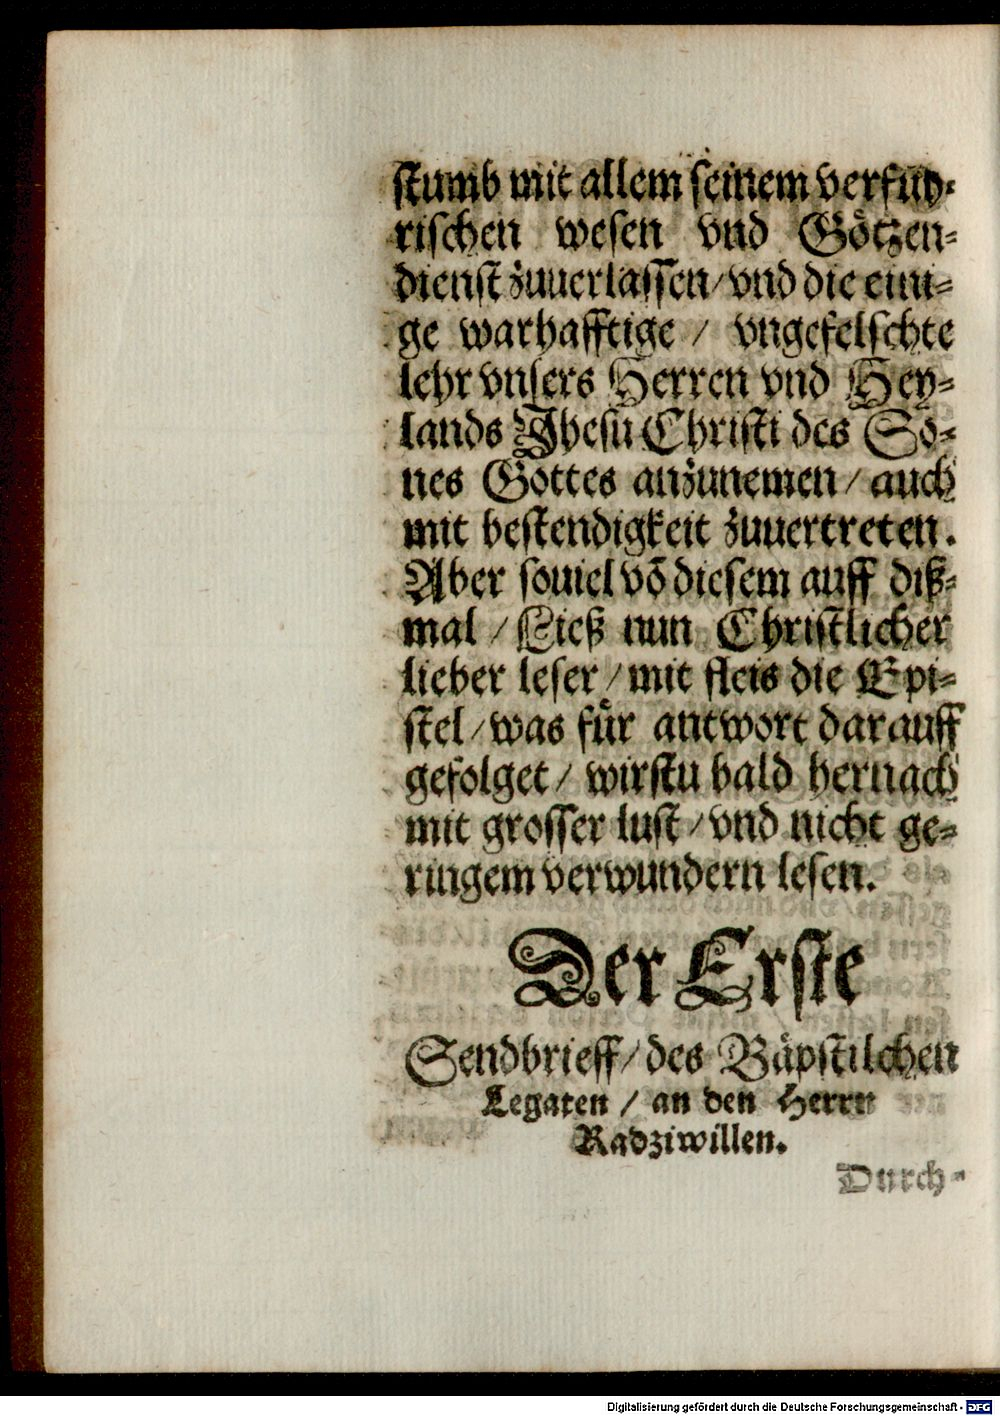 stumb mit allem seinem verfüh-
rischen wesen vnd Götzen-
dienst zuuerlassen / vnd die eini-
ge warhafftige / vngefelschte
lehr vnsers Herren vnd Hey-
lands Jhesu Christi des So-
nes Gottes anzunemen / auch
mit bestendigkeit zuuertreten.
Aber souiel võ diesem auff diß-
mal / Ließ nun Christlicher
lieber leser / mit fleis die Epi-
stel / was für antwort darauff
gefolget / wirstu bald hernach
mit grosser lust / vnd nicht ge-
ringem verwundern lesen.
Der Erste
Sendbrieff / des Bäpstilchen
Legaten / an den Herrn
Radziwillen.
Durch-
Digitalisierung gefördert durch die Deutsche Forschungsgemeinschaft - DFG